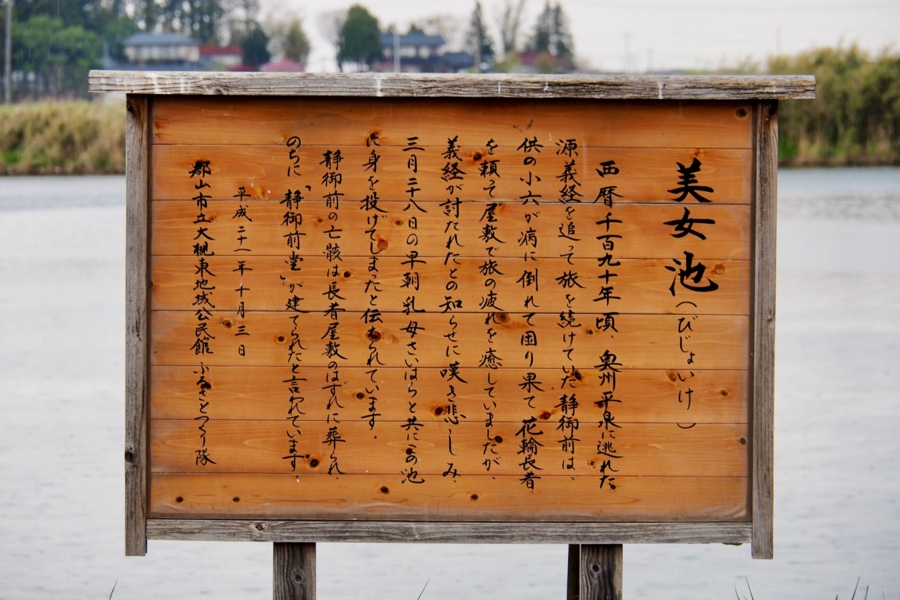 美女池（びじょいけ）
西暦千百九十年頃、奥州平泉に逃れた
源義経を追って旅を続けていた静御前は、
供の小六が病に倒れて困り果て花輪長者
を頼て屋敷で旅の疲れを癒していましたが、
義経が討たれたとの知らせに嘆き悲ししみ、
三月二十八日の早朝乳母さいはらと共にこの池
に身を投げてしまったと伝られています。
静御前の亡骸は長者屋敷のはずれに葬られ、
のちに「静御前堂」が建てられたと言われています
平成二十一年十月三日
郡山市立大槻東地域公民館 ふるさとつくり隊